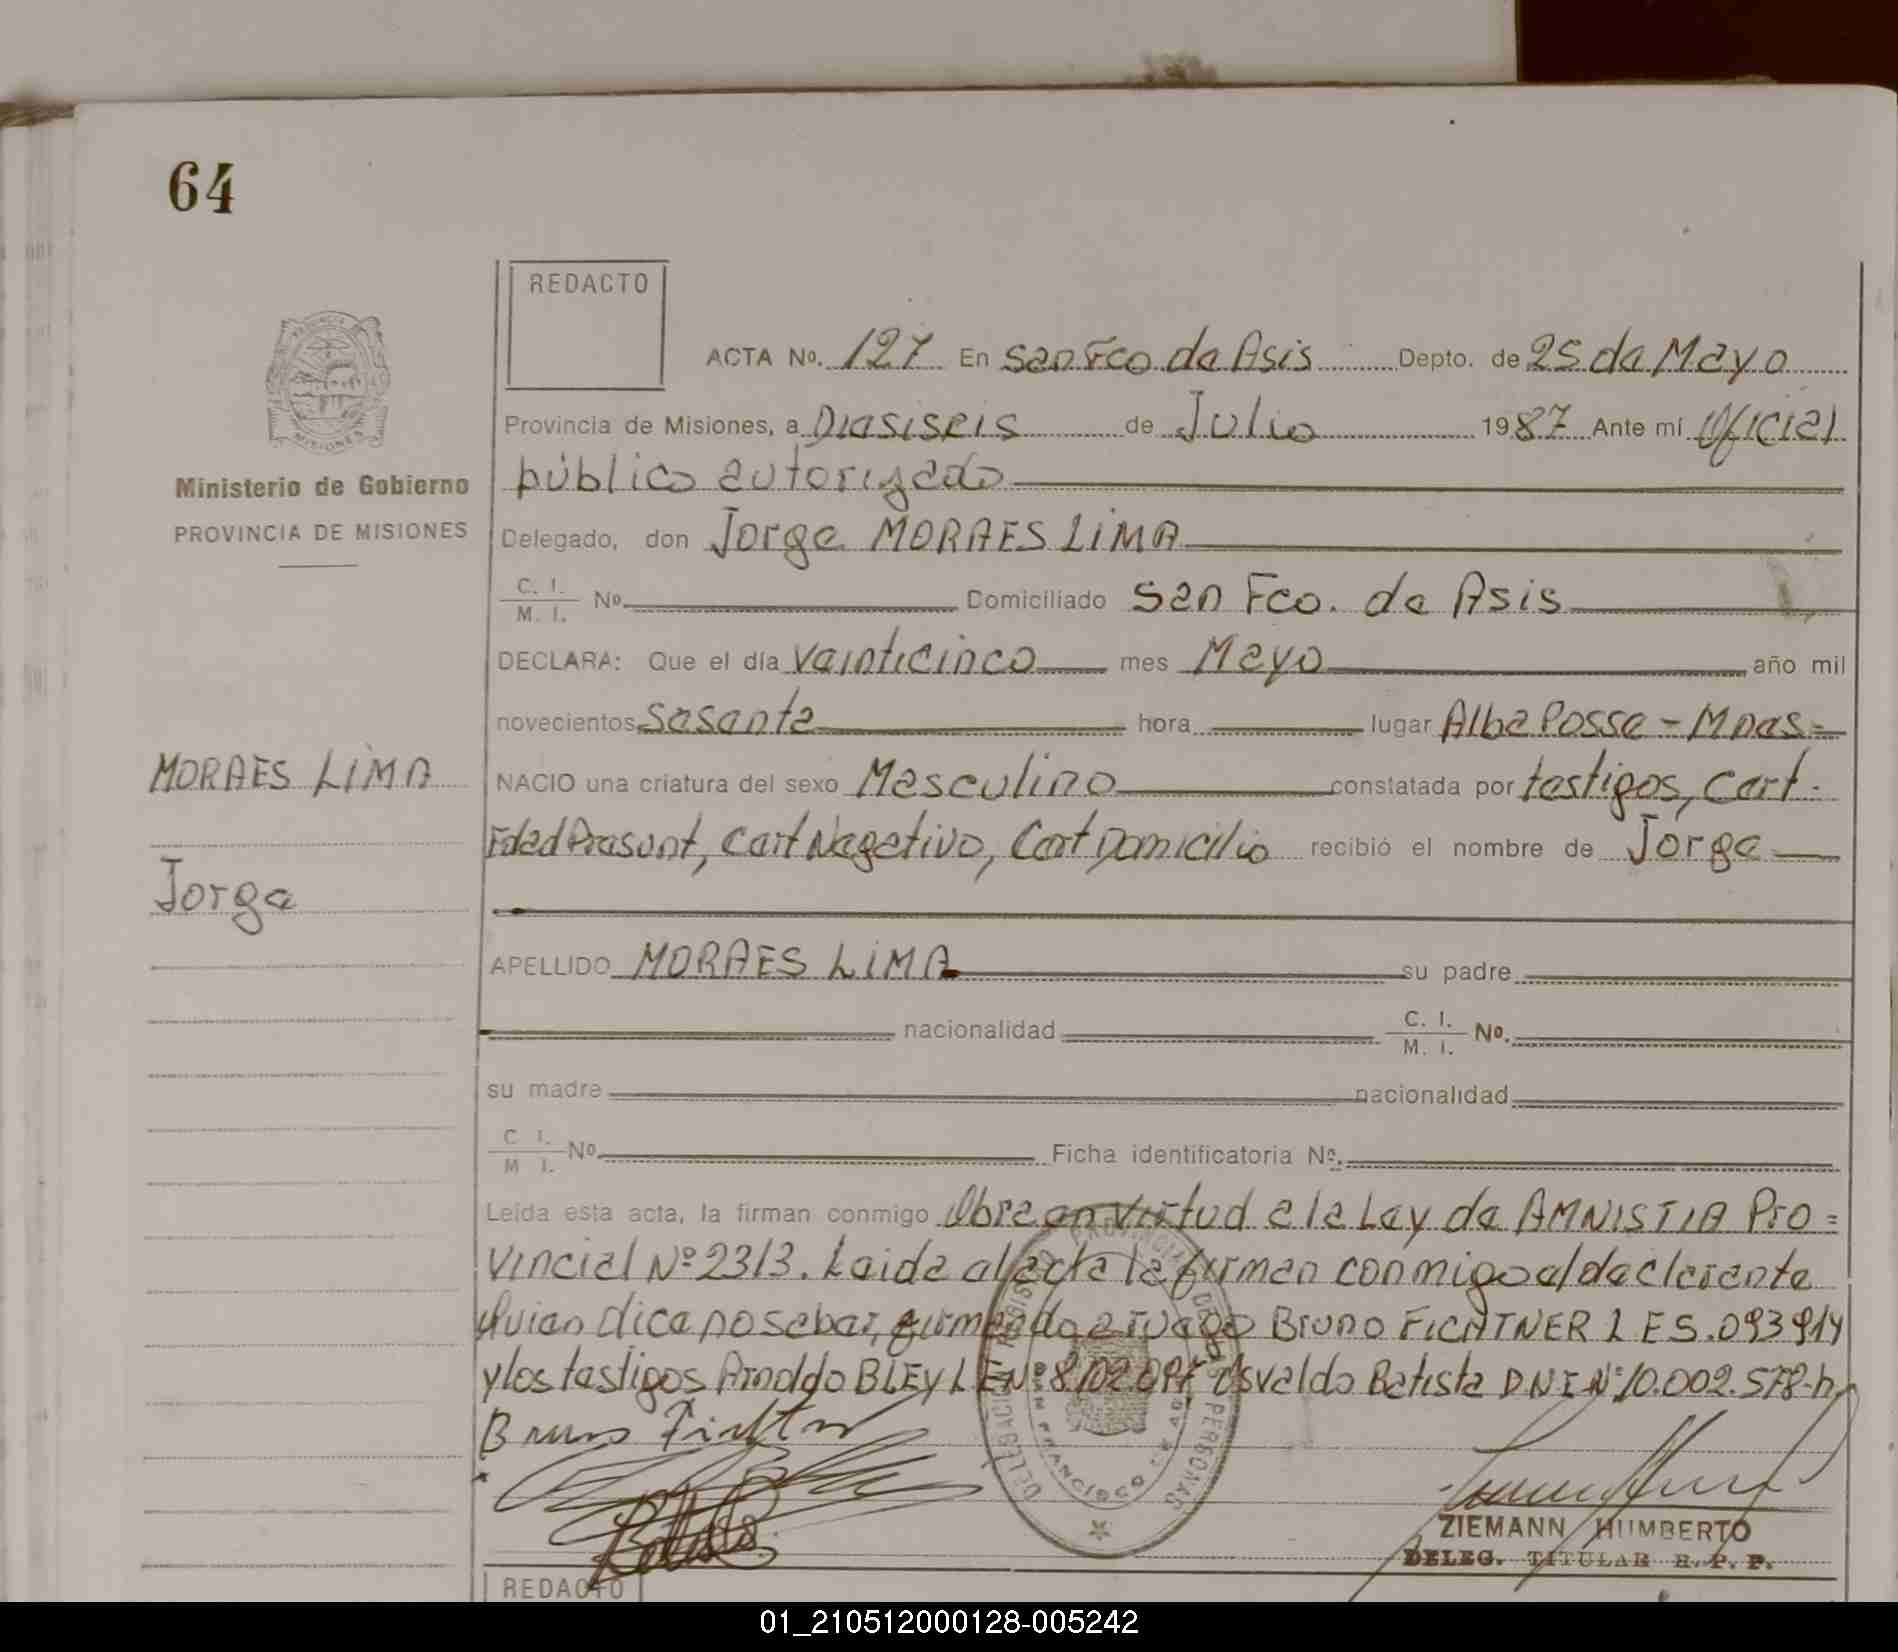 64
REDACTO
ACTA No. 127 En San Fco de Asis Depto. de 25 de Mayo
Provincia de Misiones, a Diasiseis de Julio 1987 Ante mí Oficial
público autorizado
Ministerio de Gobierno
PROVINCIA DE MISIONES
Delegado, don Jorge MORAES LiMA
C. I. / M. I. No. Domiciliado San Fco. de Asis
DECLARA: Que el día Veinticinco mes Mayo año mil
novecientos Sesenta hora lugar Alba Posse - Mnes =
MORAES LiMA
NACIO una criatura del sexo Masculino constatada por testigos, Cert.
Edad Presunt, Cert Negativo, Cert Domicilio recibió el nombre de Jorge
Jorge
APELLIDO MORAES LiMA su padre
nacionalidad C. I. / M. I. No.
su madre nacionalidad
C. I. / M. I. No. Ficha identificatoria No.
Leída esta acta, la firman conmigo Obra en Virtud a la Ley de AMNISTIA Pro=
Vincial Nº 2313. Leida al acta la firman conmigo el declarante
quien dice no saber, firmando a ruego Bruno FICHTNER L E 5.093914
y los testigos Arnoldo BLEY L E Nº 8.102.097 Osvaldo Batista DNI Nº 10.002.578-
Bruno Fichtner
DELEGACION REGISTRO PROVINCIAL DE LAS PERSONAS
SAN FRANCISCO DE ASIS
Batista
ZIEMANN HUMBERTO
DELEG. TITULAR R. P. P.
REDACTO
01_210512000128-005242